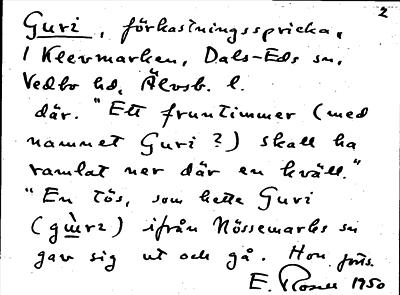 2
Guri, förkastningsspricka,
i Klevmarken, Dals-Eds sn,
Vedbo hd, Älvsb. l.
där. "Ett fruntimmer (med
namnet Guri?) skall ha
ramlat ner där en kväll."
"En tös, som hette Guri
ifrån Nössemarks sn
gav sig ut och gå. Hon forts.
E. Rosell 1950